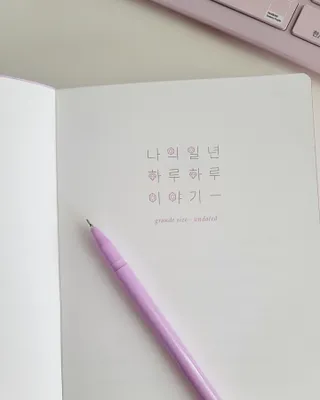 나의일년
하루하루
이야기 —